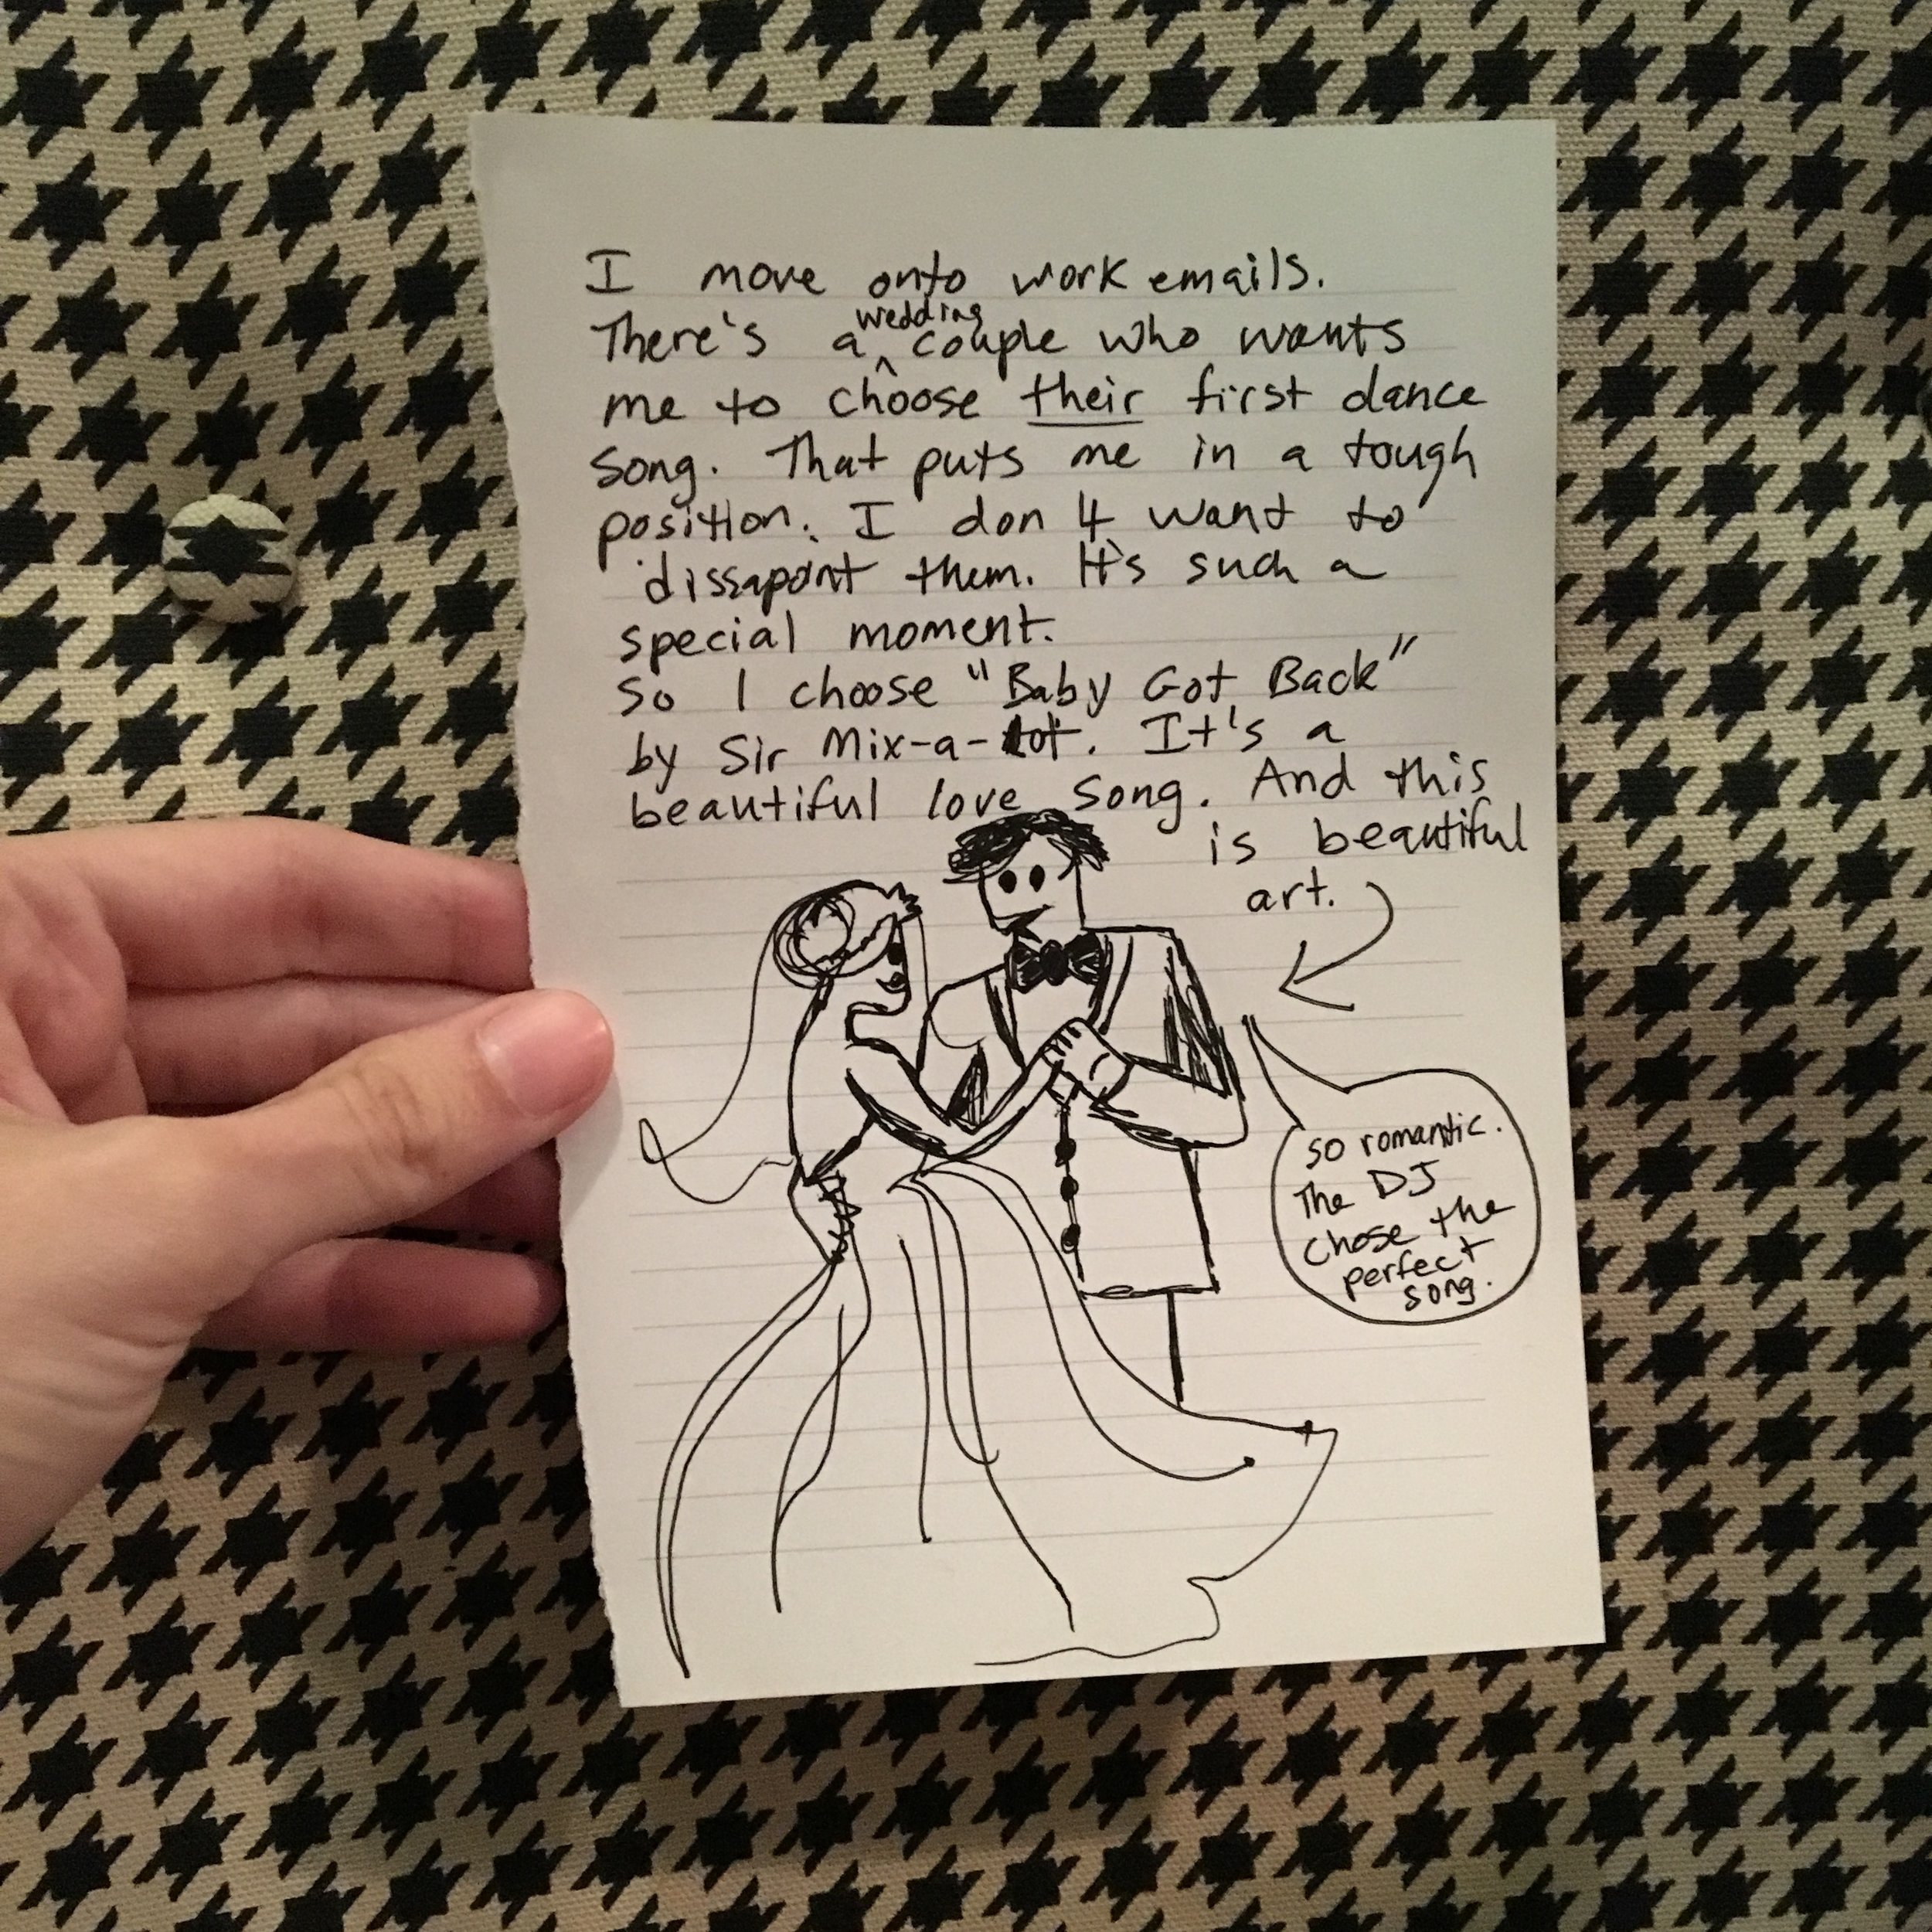 I move onto work emails.
There's a wedding couple who wants
me to choose their first dance
song. That puts me in a tough
position. I don't want to
dissapoint them. It's such a
special moment.
So I choose "Baby Got Back"
by Sir Mix-a-lot. It's a
beautiful love song. And this
is beautiful
art.
so romantic.
The DJ
chose the
perfect
song.